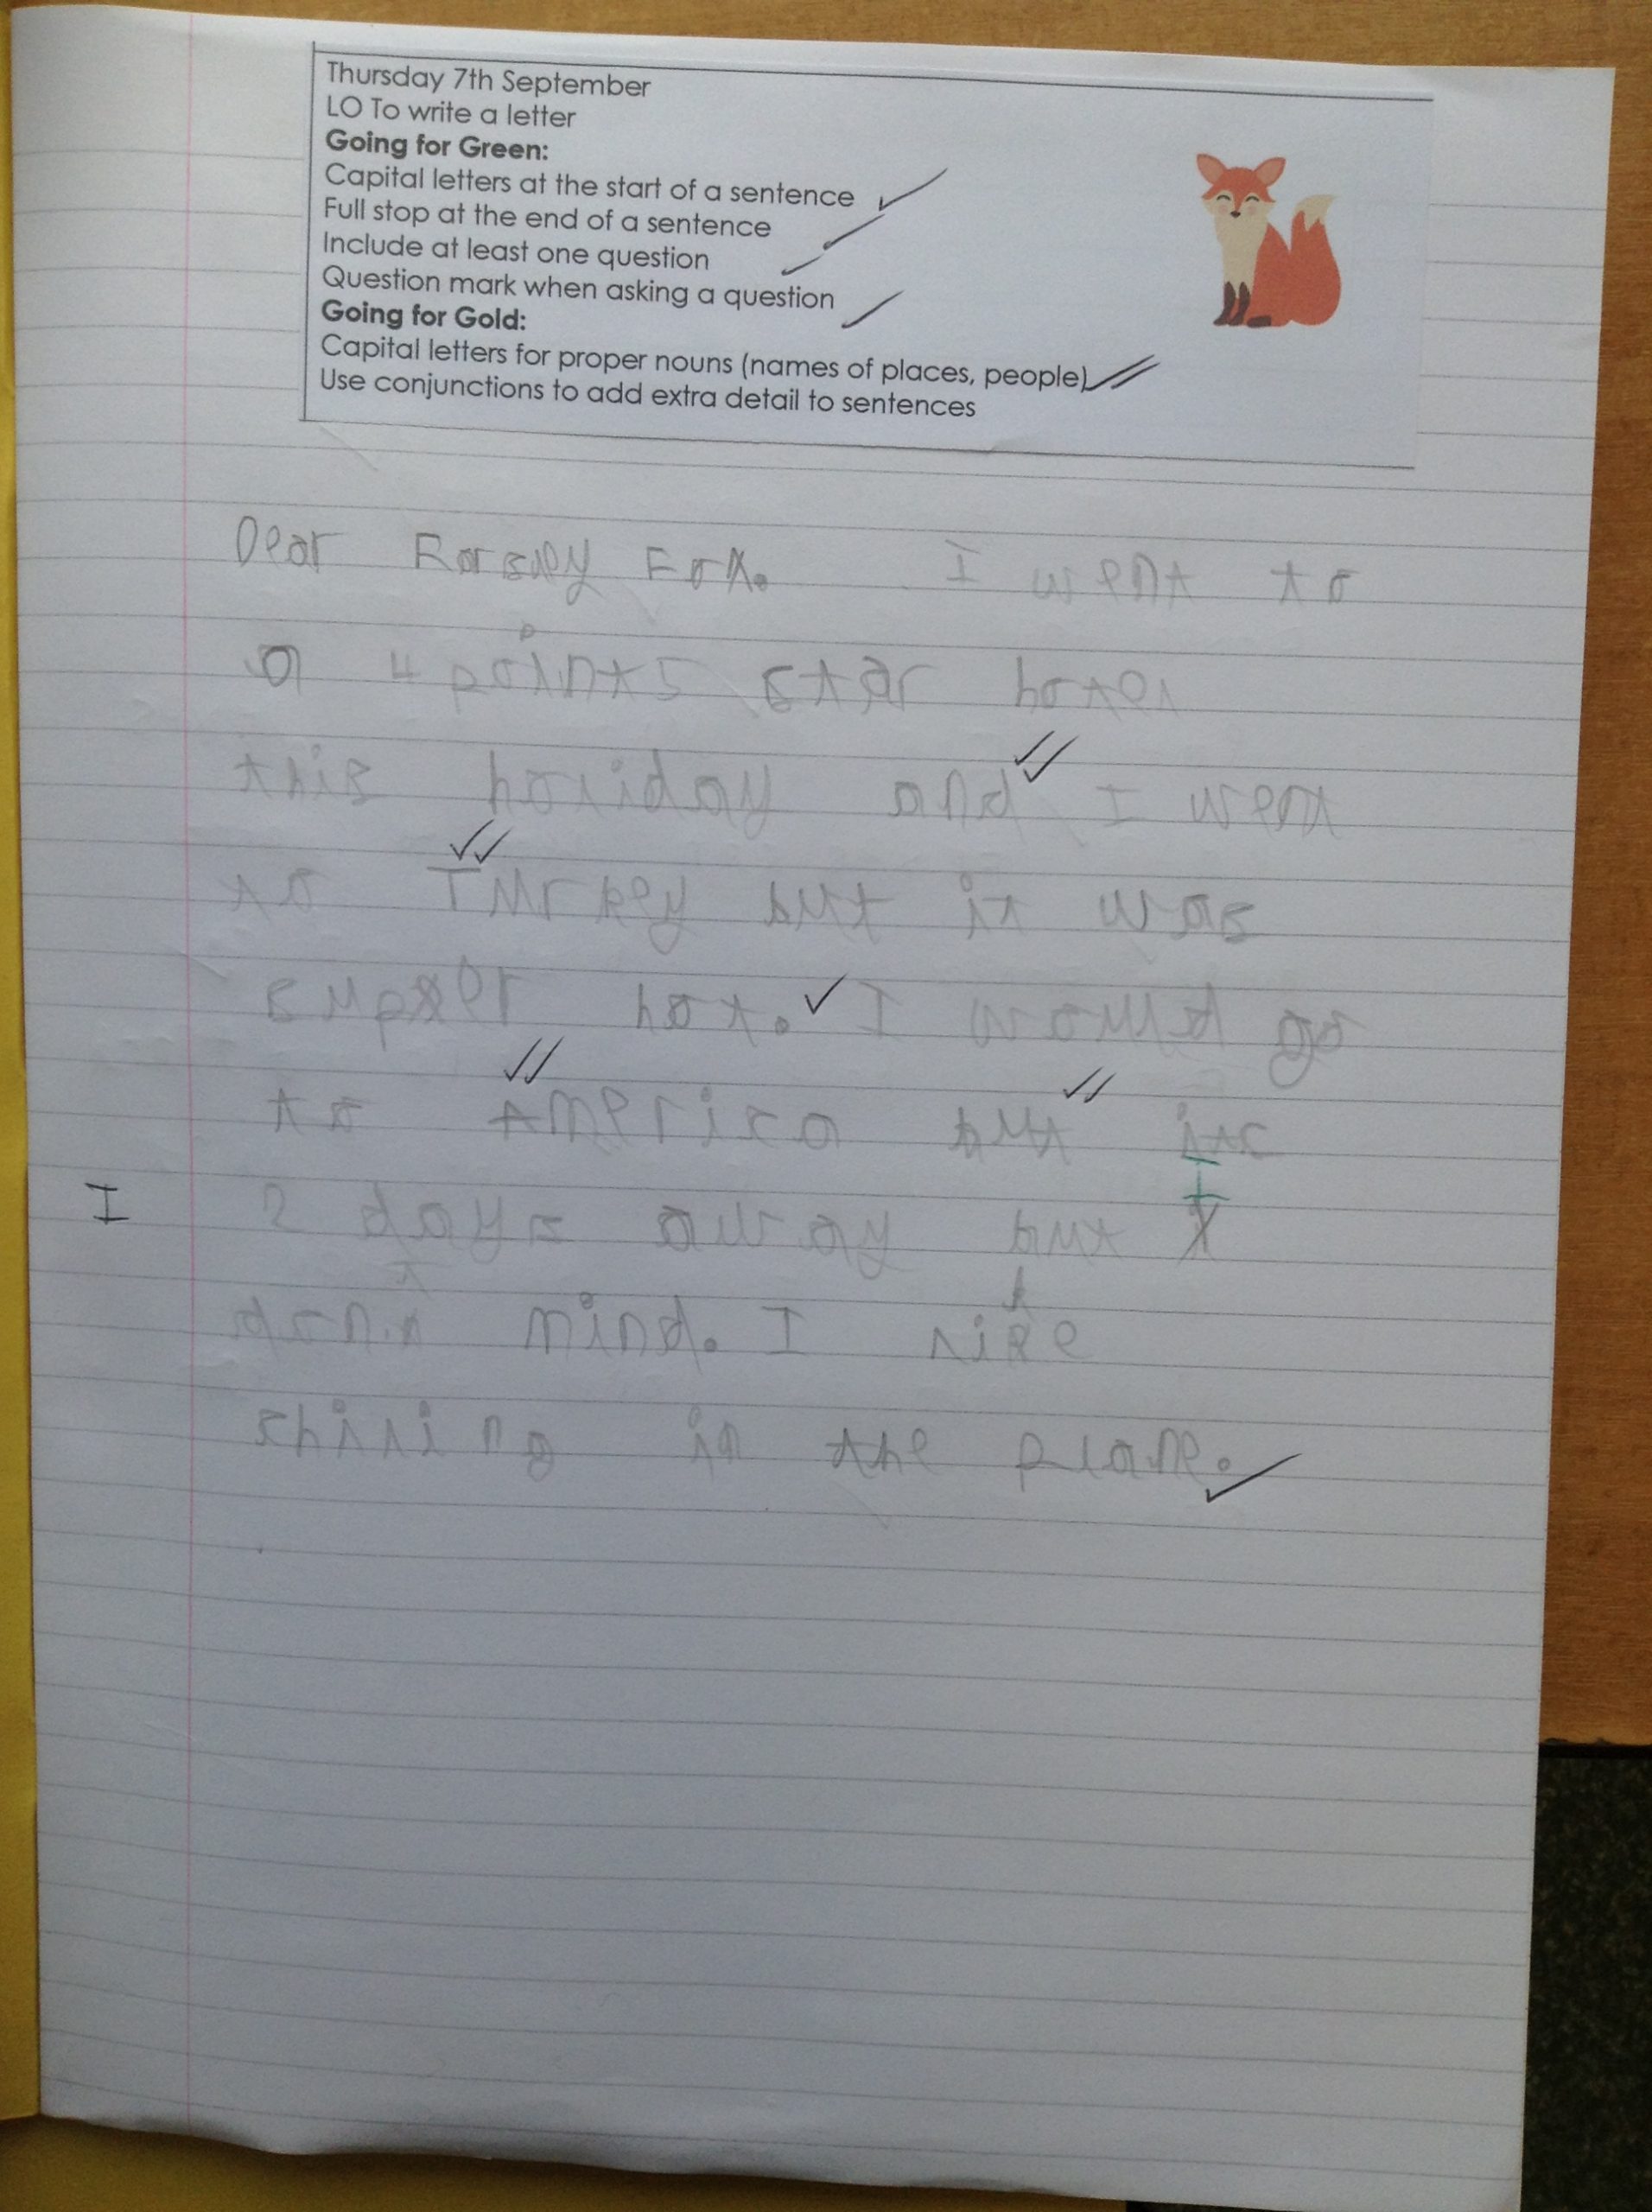 Thursday 7th September
LO To write a letter
Going for Green:
Capital letters at the start of a sentence
Full stop at the end of a sentence
Include at least one question
Question mark when asking a question
Going for Gold:
Capital letters for proper nouns (names of places, people)
Use conjunctions to add extra detail to sentences
Dear Fox. I went to
a 4 points star hotel
this horiday and I went
to Turkey but it was
super hot. I go
to America but
I days away but I
mind. I like
in the plane.